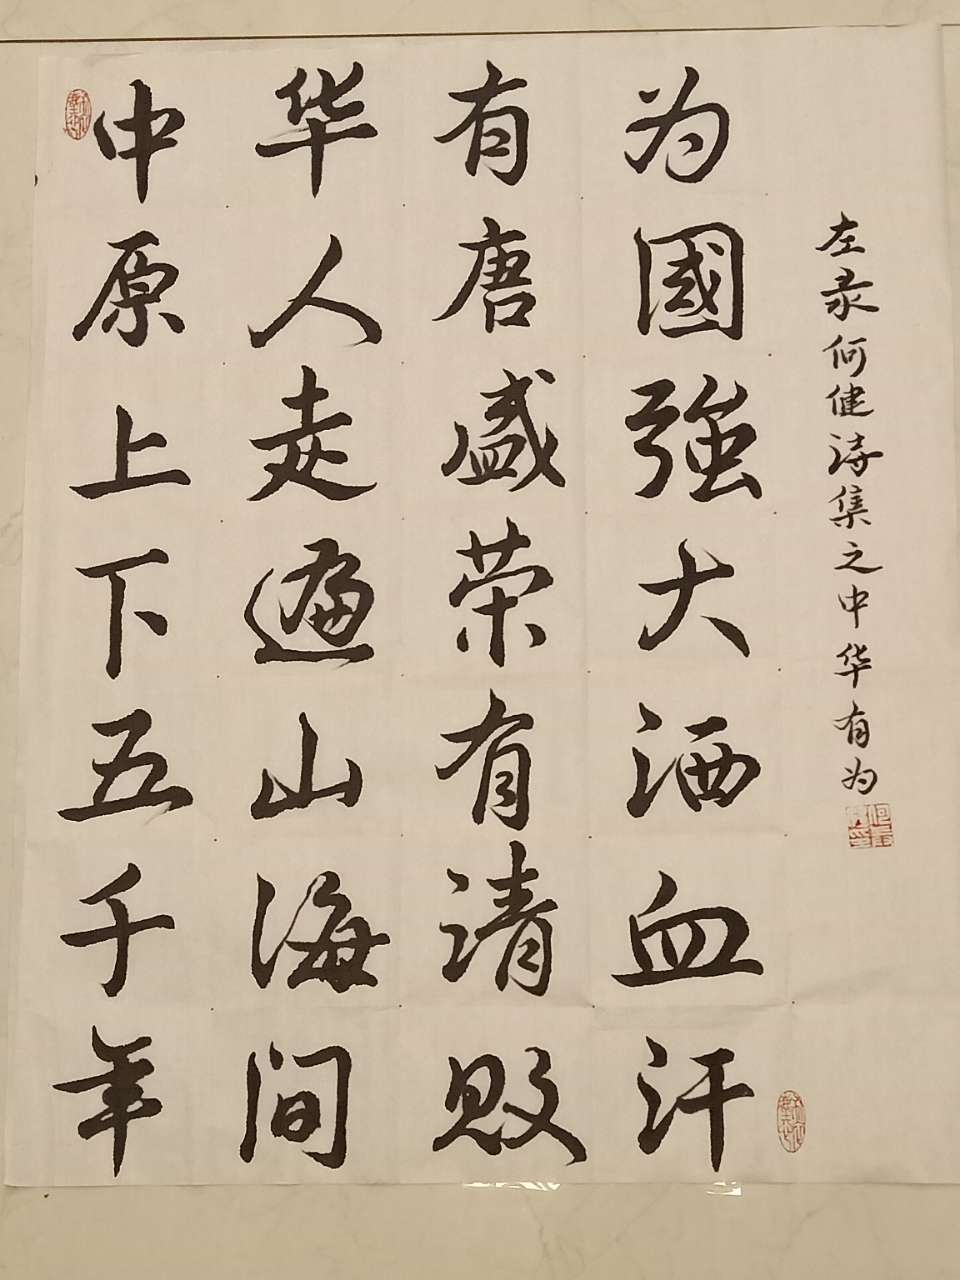 中原上下五千年
华人走遍山海间
有唐盛荣有清败
为國強大洒血汗
左录何健诗集之中华有为